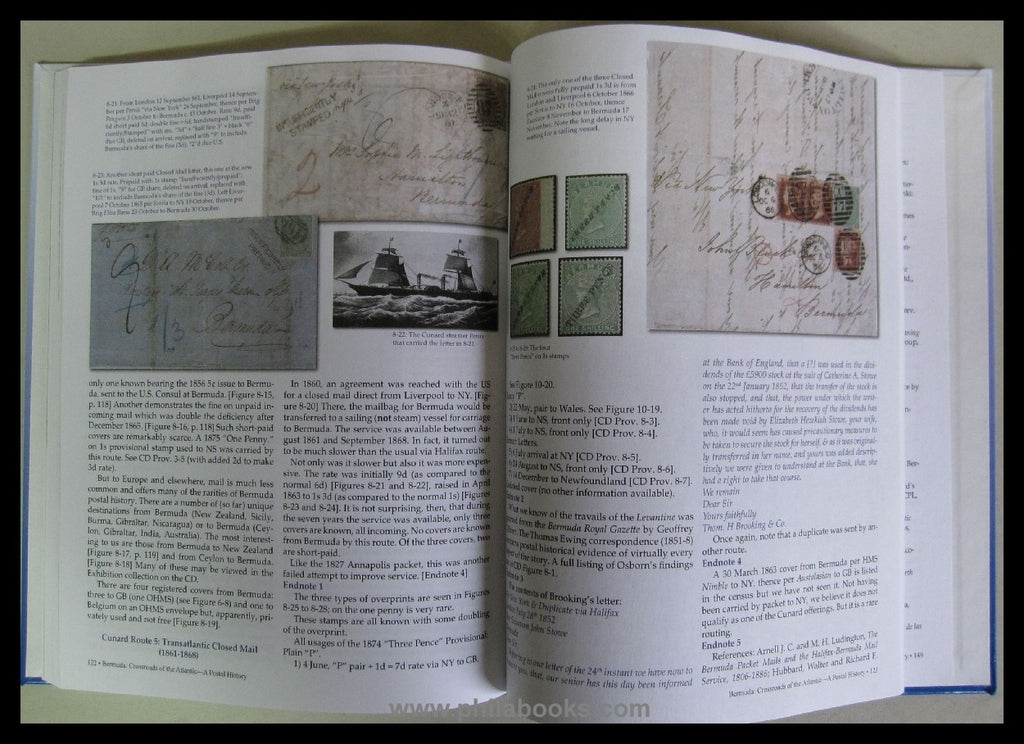 8-21: From London 12 September 1861, Liverpool 14 Septem-
ber per Persia "via New York" 26 September, thence per Brig
6d short paid 3d; double fine = 6d; handstamped "Insuffi-
Bermuda's share of the fine (3d). "2"d due U.S.
8-23: Another short paid Closed Mail letter, this one at the new
1s 3d rate. Prepaid with 1s stamp "Insufficiently/prepaid"
INSUFFICIENTLY
STAMPED
Hamilton
Bermuda
Bermuda
8-22: The Cunard steamer Persia
that carried the letter in 8-21
only one known bearing the 1856 5¢ issue to Bermu-
da, sent to the U.S. Consul at Bermuda. [Figure 8-15,
p. 118] Another demonstrates the fine on unpaid in-
coming mail which was double the deficiency after
December 1865. [Figure 8-16, p. 118] Such short-paid
covers are remarkably scarce. A 1875 "One Penny."
on 1s provisional stamp used to NS was carried by
this route. See CD Prov. 3-5 (with added 2d to make
3d rate).
But to Europe and elsewhere, mail is much less
common and offers many of the rarities of Bermuda
postal history. There are a number of (so far) unique
destinations from Bermuda (New Zealand, Sicily,
Burma, Gibraltar, Nicaragua) or to Bermuda (Cey-
lon, Gibraltar, India, Australia). The most interest-
ing to us are those from Bermuda to New Zealand
[Figure 8-17, p. 119] and from Ceylon to Bermuda.
[Figure 8-18] Many of these may be viewed in the
Exhibition collection on the CD.
There are four registered covers from Bermuda:
three to GB (one OHMS) (see Figure 6-8) and one to
Belgium on an OHMS envelope but, apparently, pri-
vately used and not free [Figure 8-19].
Cunard Route 5: Transatlantic Closed Mail
(1861-1868)
122 • Bermuda: Crossroads of the Atlantic—A Postal History
In 1860, an agreement was reached with the US
for a closed mail direct from Liverpool to NY. [Fig-
ure 8-20] There, the mailbag for Bermuda would be
transferred to a sailing (not steam) vessel for carriage
to Bermuda. The service was available between Au-
gust 1861 and September 1868. In fact, it turned out
to be much slower than the usual via Halifax route.
Not only was it slower but also it was more expen-
sive. The rate was initially 9d (as compared to the
normal 6d) [Figures 8-21 and 8-22], raised in April
1863 to 1s 3d (as compared to the normal 1s) [Figures
8-23 and 8-24]. It is not surprising, then, that during
the seven years the service was available, only three
covers are known, all incoming. No covers are known
from Bermuda by this route. Of the three covers, two
are short-paid.
Like the 1827 Annapolis packet, this was another
failed attempt to improve service. [Endnote 4]
Endnote 1
The three types of overprints are seen in Figures
8-25 to 8-28; on the one penny is very rare.
These stamps are all known with some doubling
of the overprint.
All usages of the 1874 "Three Pence" Provisional:
Plain "P".
1) 4 June, "P" pair + 1d = 7d rate via NY to GB.
8-24: The only one of the three Closed
Mail covers fully prepaid 1s 3d is from
London and Liverpool 6 October 1866
per Scotia to NY 16 October, thence
November. Note the long delay in NY
waiting for a sailing vessel.
ONE SHILLING
Hamilton
Bermuda
The four
"Three Pence" on 1s stamps
See Figure 10-20.
"P".
22 May, pair to Wales. See Figure 10-19.
June to NS, front only [CD Prov. 8-3].
July to NS, front only [CD Prov. 8-4].
Letters.
July arrival at NY [CD Prov. 8-5].
August to NS, front only [CD Prov. 8-6].
December to Newfoundland [CD Prov. 8-7].
cover (no other information available).
What we know of the travails of the Levantine was
from the Bermuda Royal Gazette by Geoffrey
The Thomas Ewing correspondence (1851-8)
postal historical evidence of virtually every
of the story. A full listing of Osborn's findings
CD Figure 8-1.
contents of Brooking's letter:
York & Duplicate via Halifax
July 28th 1852
John Stowe
to our letter of the 24th instant we have now to
you, that, our senior has this day been informed
at the Bank of England, that a (?) was used in the divi-
dends of the £5900 stock at the suit of Catherine A. Stowe
on the 22nd January 1852, that the transfer of the stock is
also stopped, and that, the power under which the writ-
er has acted hitherto for the recovery of the dividends has
been made void by Elizabeth Hezekiah Stowe, your wife,
who, it would seem has caused precautionary measures to
be taken to secure the stock for herself, & as it was original-
ly transferred in her name, and yours was added descrip-
tively we were given to understand at the Bank, that, she
had a right to take that course.
We remain
Dear Sir
Yours faithfully
Thom. H Brooking & Co.
Once again, note that a duplicate was sent by an-
other route.
Endnote 4
A 30 March 1863 cover from Bermuda per HMS
Nimble to NY, thence per Australasian to GB is listed
in the census but we have not seen it. Not having
been carried by packet to NY, we believe it does not
qualify as one of the Cunard offerings. But it is a rare
routing.
Endnote 5
References: Arnell J. C. and M. H. Ludington, The
Bermuda Packet Mails and the Halifax-Bermuda Mail
Service, 1806-1886; Hubbard, Walter and Richard F.
Bermuda: Crossroads of the Atlantic—A Postal History • 123
149
www.philabooks.com